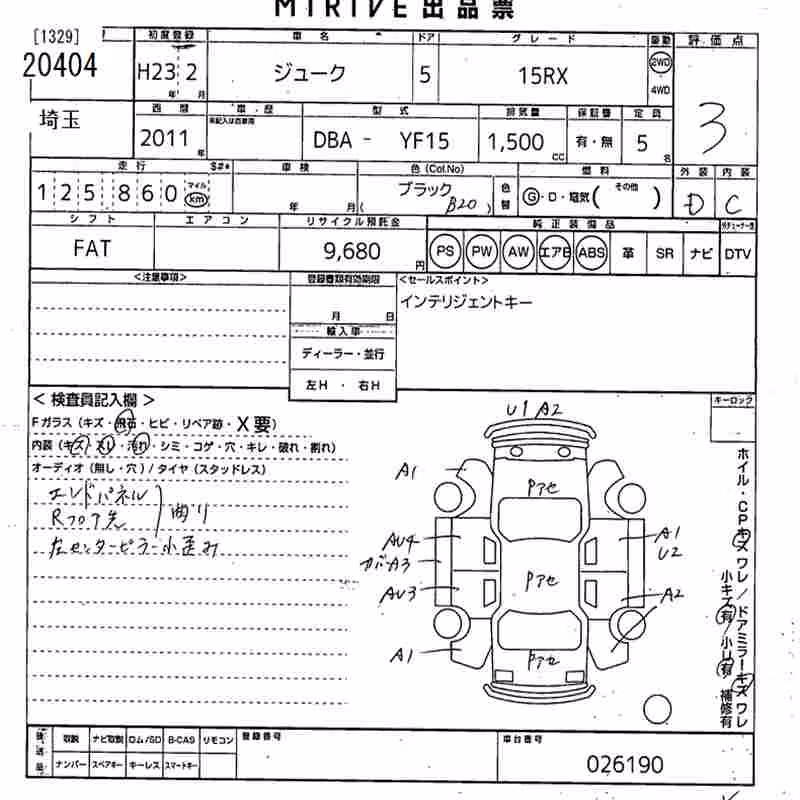 MIRIVE 出品票
[1329]
20404
初度登録 車名 ドア グレード 駆動 評価点
H23 2 年 月 ジューク 5 15RX 2WD 4WD 3
埼玉
西暦 車歴 型式 排気量 保証書 定員
2011 年 未記入は自家用 DBA - YF15 1,500 CC 有・無 5 名
走行 $#* 車検 色(Col.No) 燃料 外装 内装
125860 マイル km 年 月 ブラック B20 色替 G・D・電気( その他 ) D C
シフト エアコン リサイクル預託金 純正装備品
FAT 9,680 円 PS PW AW エアB ABS 革 SR ナビ DTV
<注意事項> 登録書類有効期限 <セールスポイント>
月 日 インテリジェントキー
輸入車
ディーラー・並行
左H ・ 右H
< 検査員記入欄 > キーロック
Fガラス (キズ・飛石・ヒビ・リペア跡・X要)
内装 (キズ・スレ・汚れ・シミ・コゲ・穴・キレ・破れ・割れ)
オーディオ (無し・穴) / タイヤ (スタッドレス)
エンドパネル
Rフロア先 曲り
左センターピラー小歪み
U1 A2
A1
Pアセ
AU4
A1
U2
カバーA3
Pアセ
AU3
A2
A1
Pアセ
ホイル・CPキズ ワレ / ドアミラーキズ ワレ
小キズ有 / 小U有 補修有
後送品 取説 ナビ取説 ロム/SD B-CAS リモコン 登録番号 車台番号
ナンバー スペアキー キーレス スマートキー 026190